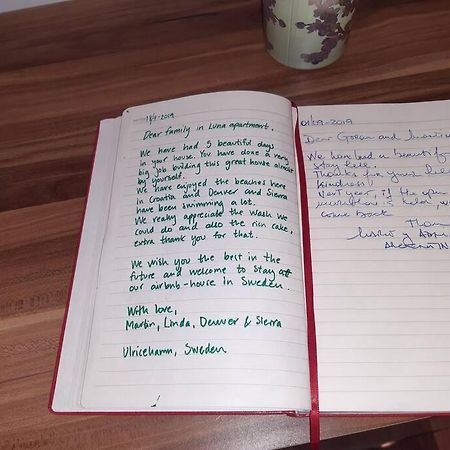 1/9-2019
Dear family in Luna apartment.
We have had 5 beautiful days
in your house. You have done a very
big job building this great house almost
by yourself.
We have enjoyed the beaches here
in Croatia and Denver and Sierra
have been swimming a lot.
We really appreciate the wash we
could do and also the rich cake,
extra thank you for that.
We wish you the best in the
future and welcome to stay at
our airbnb-house in Sweden.
With love,
Martin, Linda, Denver & Sierra
Ulricehamn, Sweden
01/09-2019
Dear Goran and
We have had a beautiful
stay here.
Thanks for your
kindness!
Next year, if the open
is
come back